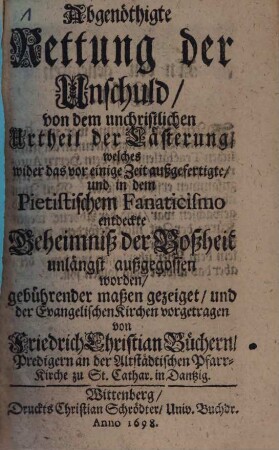 1
Abgenöthigte
Rettung der
Unschuld/
von dem unchristlichen
Urtheil der Lästerung/
welches
wider das vor einige Zeit außgefertigte/
und in dem
Pietistischem Fanaticismo
entdeckte
Geheimniß der Boßheit
unlängst außgegossen
worden/
gebührender maßen gezeiget/ und
der Evangelischen Kirchen vorgetragen
von
Friedrich Christian Büchern/
Predigern an der Altstädtischen Pfarr-
Kirche zu St. Cathar. in Dantzig.
Wittenberg/
Druckts Christian Schrödter/ Univ. Buchdr.
Anno 1698.